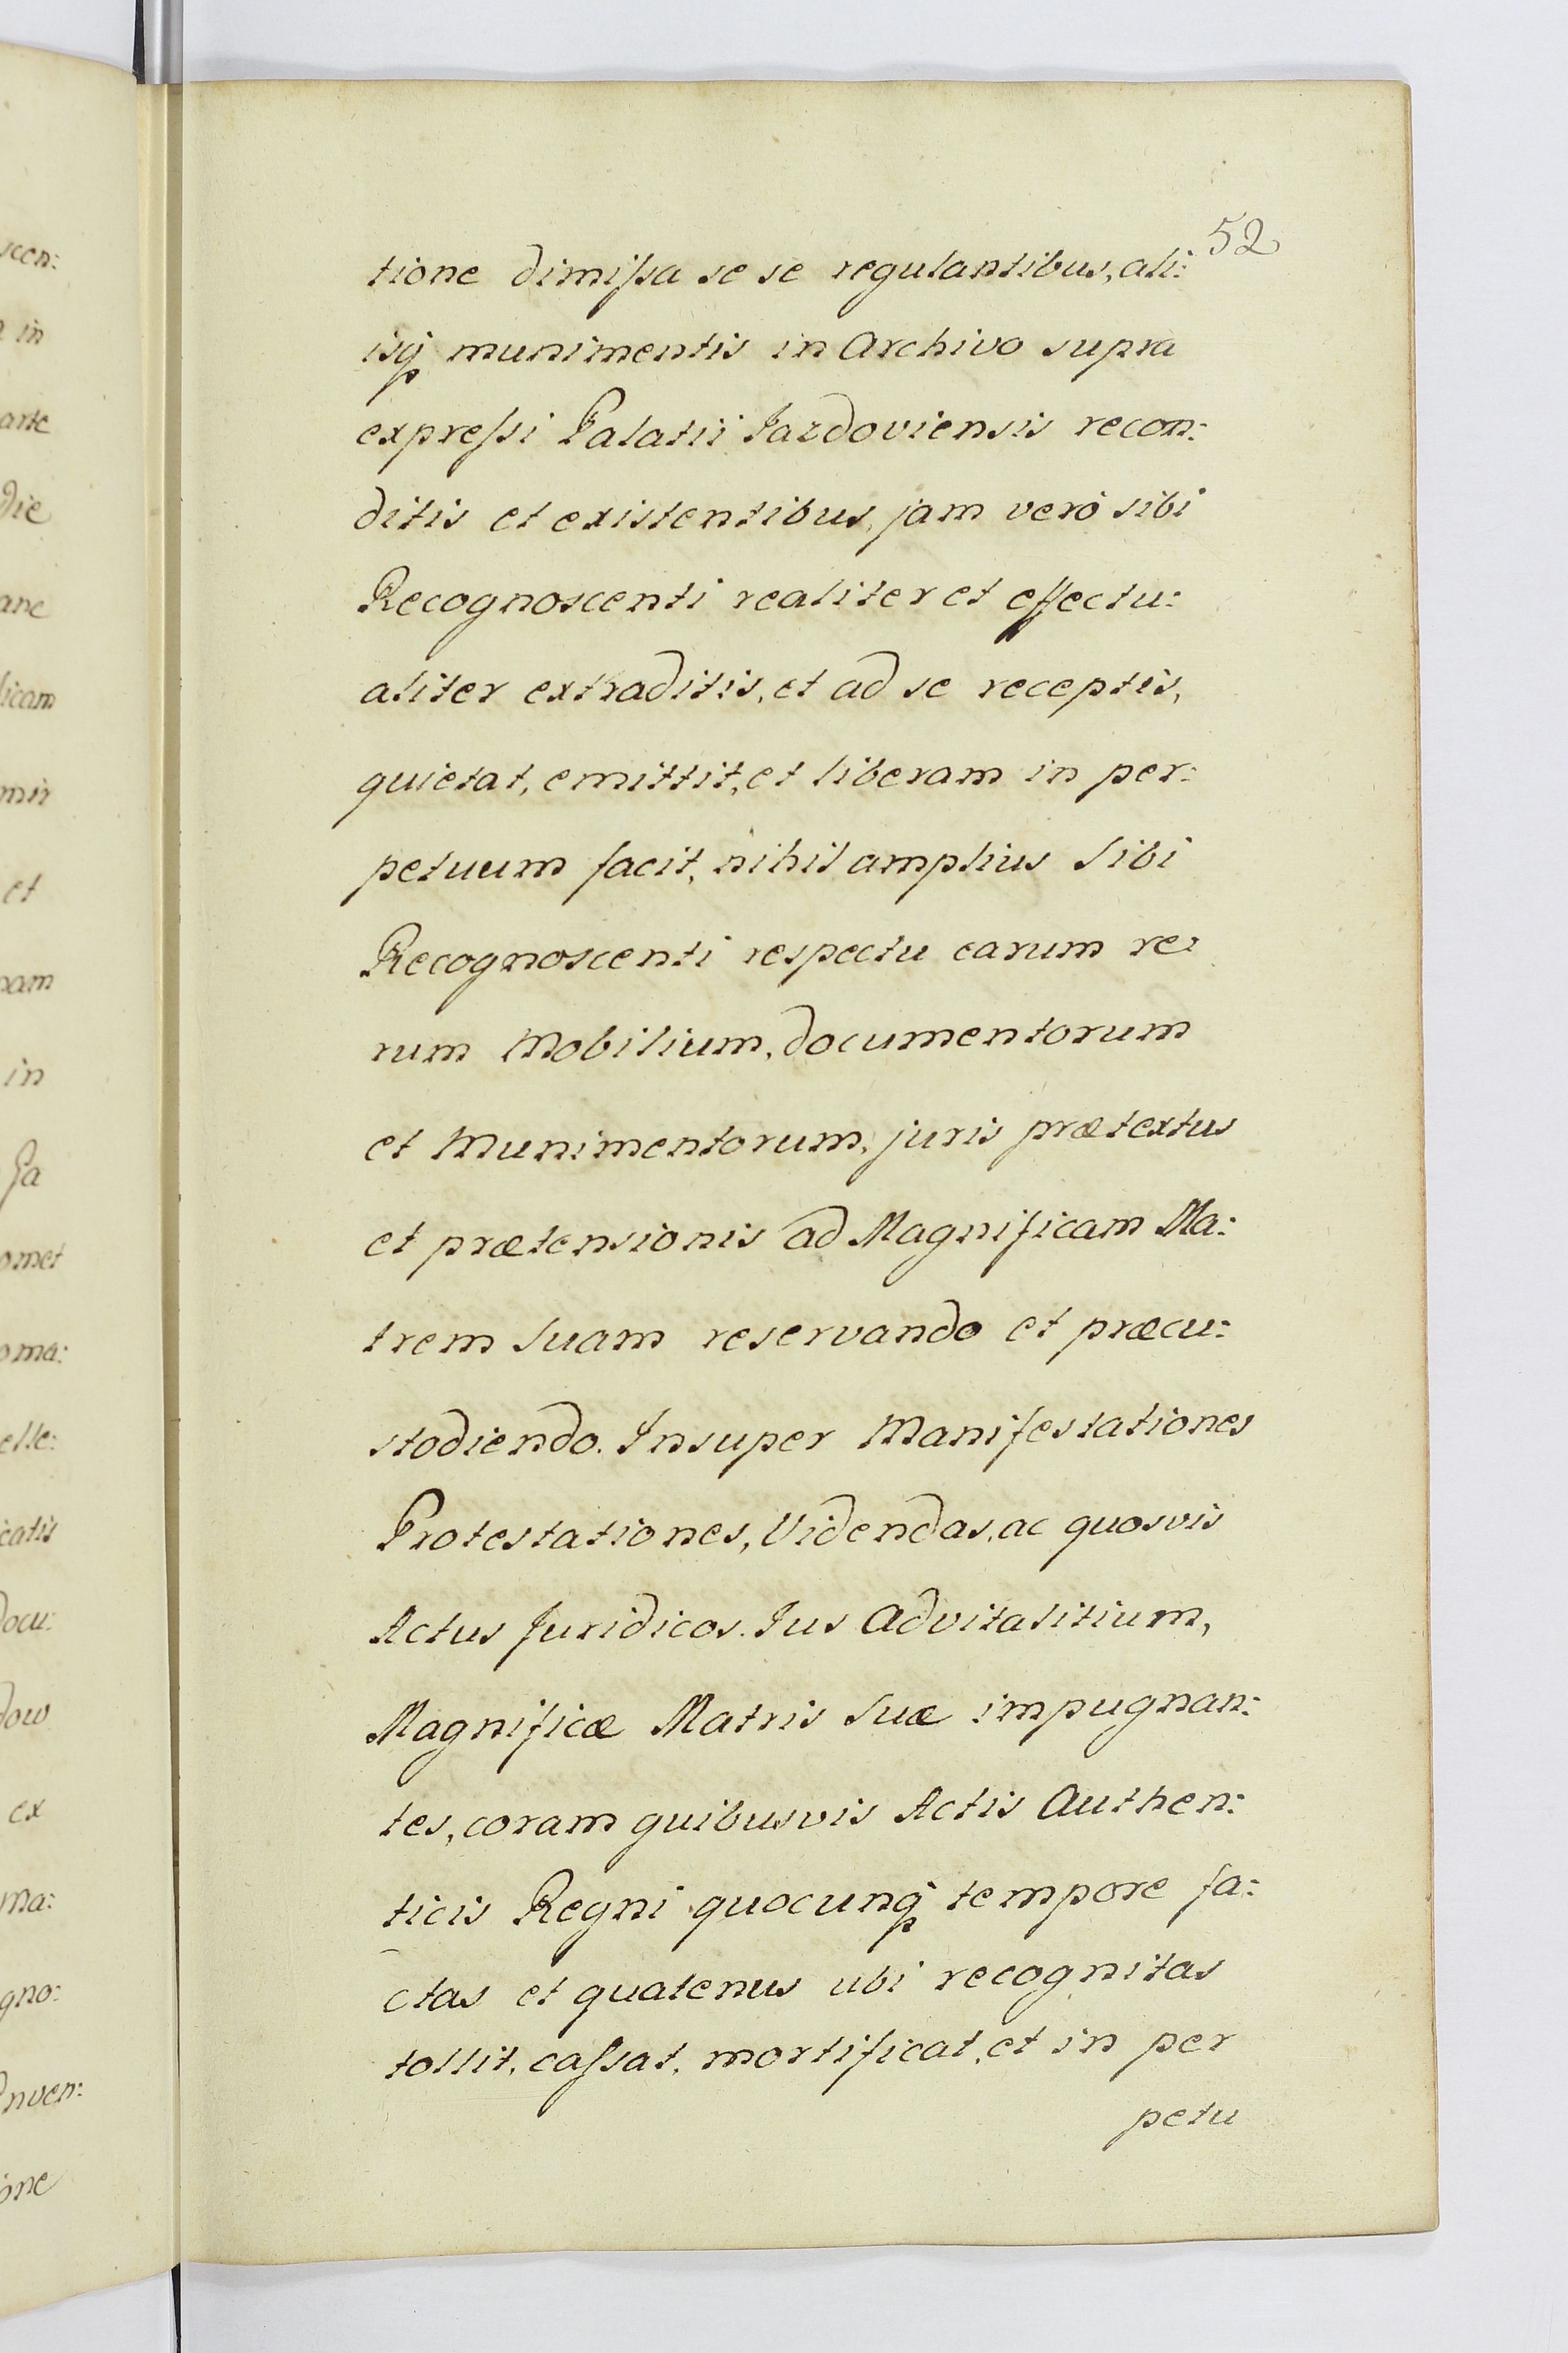 52
tione dimiſsa se se regulantibus, ali:
isq̃ munimentis in Archivo supra
expreſsi Palatii Jazdoviensis recon:
ditis et existentibus, jam verò sibi
Recognoscenti realiter et effectu:
aliter extraditis, et ad se receptis,
quietat, emittit, et liberam in per:
petuum facit, nihil amplius Sibi
Recognoscenti respectu earum re:
rum Mobilium, documentorum
et Munimentorum, juris prætextus
et prætensionis ad Magnificam Ma:
trem Suam reservando et præcu:
stodiendo. Insuper Manifestationes
Protestationes, Videndas, ac quosvis
Actus Juridicos. Jus Advitalitium,
Magnificæ Matris Suæ impugnan:
tes, coram quibusvis Actis Authen:
ticis Regni quocunq̃ tempore fa:
ctas et quatenus ubi recognitas
tollit, caſsat, mortificat, et in per
petu